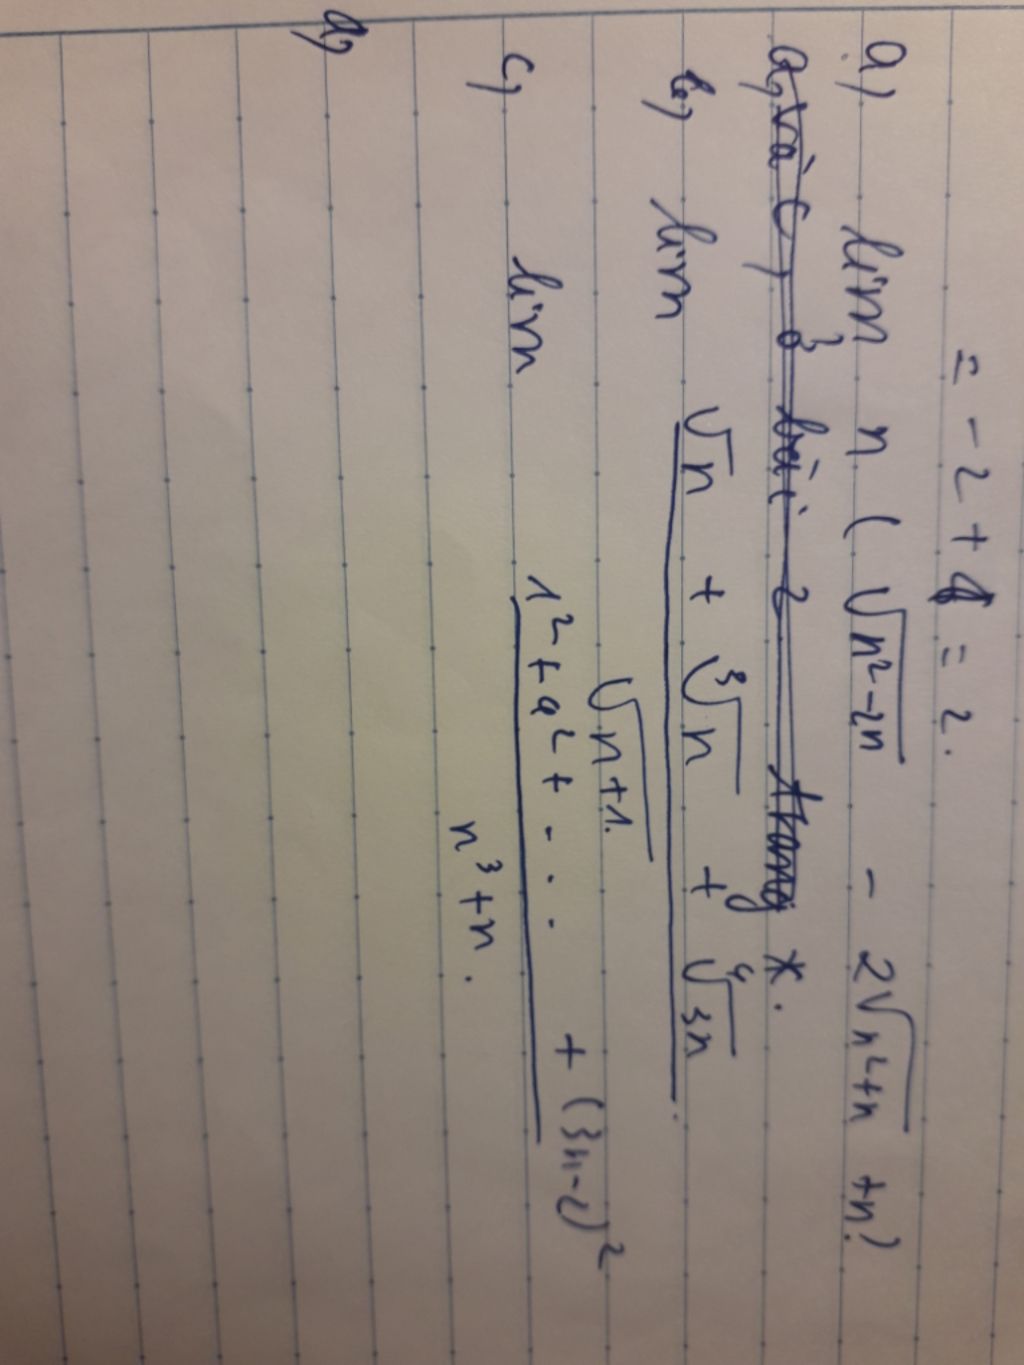 = - 2 + 4 = 2.
a) lim n ( √n²-2n - 2√n²+n +n)
a, và c, ở bài 2 trang *.
b) lim √n + ³√n + ⁴√3n
√n+1.
c) lim 1² + 4² + ... + (3n-2)²
n³+n.
d)